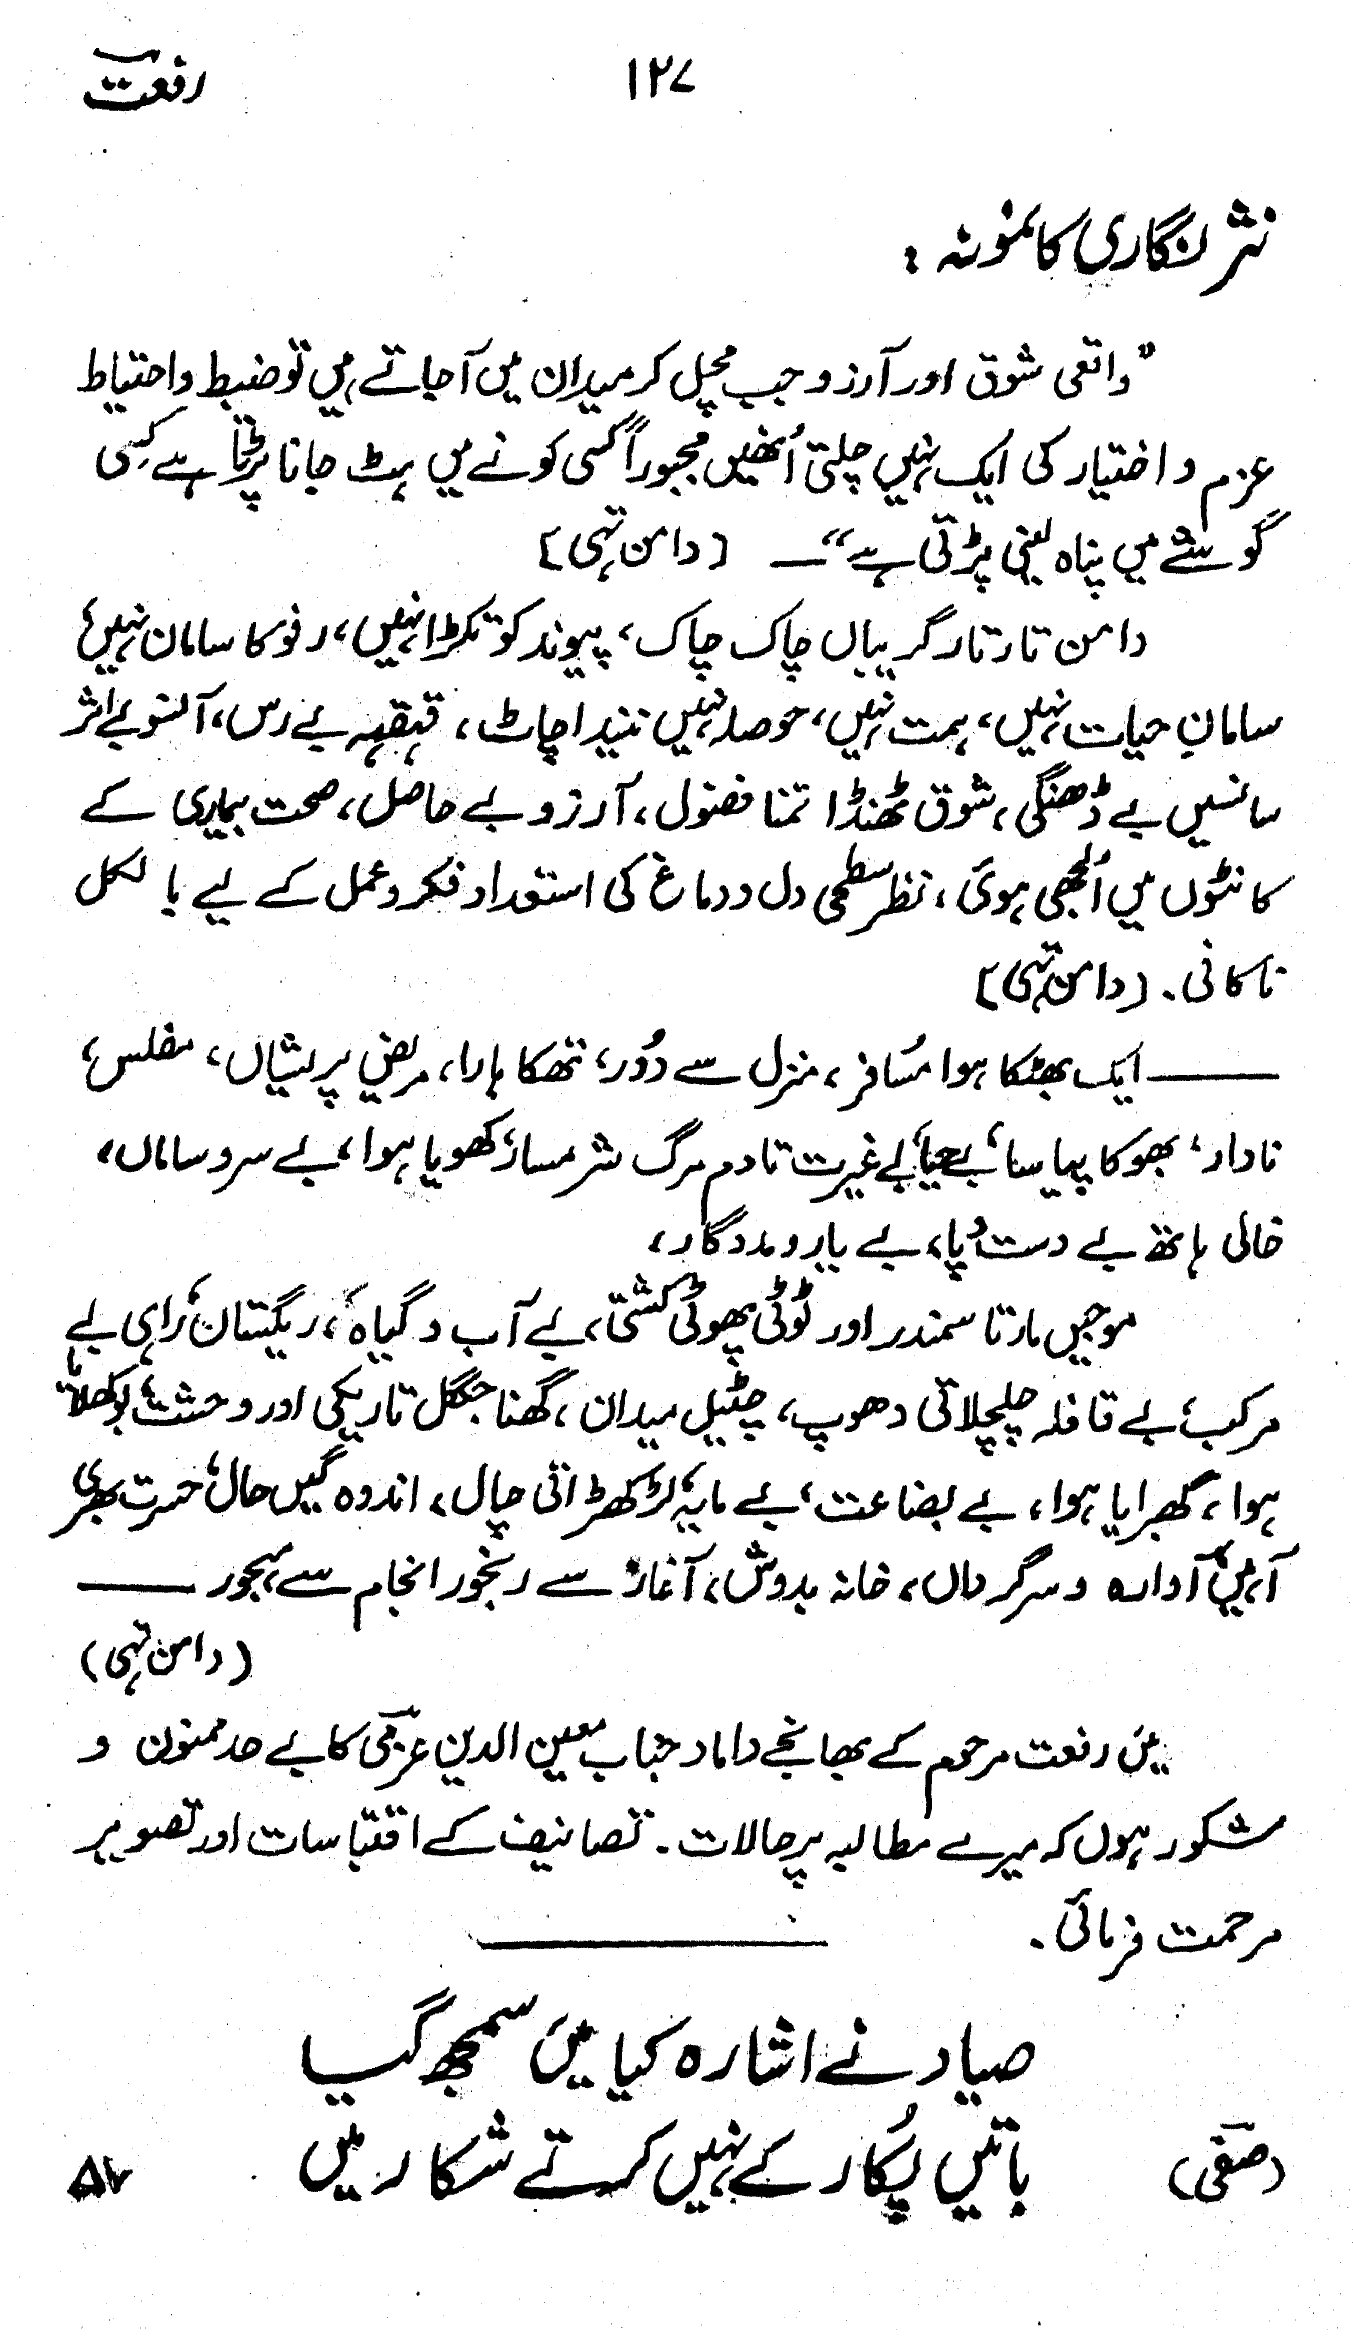 رفعتؔ
۱۲۷
نثر نگاری کا نمونہ :
”واقعی شوق اور آرزو جب مچل کر میدان میں آ جاتے ہیں تو ضبط و احتیاط
عزم و اختیار کی ایک نہیں چلتی اُنھیں مجبوراً کسی کونے میں ہٹ جانا پڑتا ہے کِسی
گوشے میں پناہ لینی پڑتی ہے“ — [دامن تہی]
دامن تار تار گریباں چاک چاک، پیوند کو ٹکڑا نہیں، رفو کا سامان نہیں،
سامانِ حیات نہیں، ہمت نہیں، حوصلہ نہیں نیند اچاٹ، قہقہہ بے رس، آنسو بے اثر
سانسیں بے ڈھنگی، شوق ٹھنڈا تمنا فضول، آرزو بے حاصل، صحت بیماری کے
کانٹوں میں اُلجھی ہوئی، نظر سطحی دل و دماغ کی استعداد فکر و عمل کے لیے بالکل
ناکافی۔ [دامن تہی]
—— ایک بھٹکا ہوا مُسافر، منزل سے دُور، تھکا ہارا، مریض پریشاں، مفلس،
نادار، بھوکا پیاسا، بے حیا، بے غیرت تادم مرگ شرمسار، کھویا ہوا، بے سر و ساماں،
خالی ہاتھ بے دست و پا، بے یار و مددگار،
موجیں مارتا سمندر اور ٹوٹی پھوٹی کشتی، بے آب و گیاہ، ریگستان، راہی بے
مرکب، بے قافلہ چلچلاتی دھوپ، چٹیل میدان، گھنا جنگل تاریکی اور وحشت، بوکھلایا
ہوا، گھبرایا ہوا، بے بضاعت، بے مایہ، لڑکھڑاتی چال، اندوہ گیں حال، حسرت بھری
آہیں، آوارہ و سرگرداں، خانہ بدوش، آغاز سے رنجور انجام سے مہجور ——
(دامن تہی)
میں رفعت مرحوم کے بھانجے داماد جناب معین الدین عزمیؔ کا بے حد ممنون و
مشکور ہوں کہ میرے مطالبہ پر حالات۔ تصانیف کے اقتباسات اور تصویر
مرحمت فرمائی۔
صیاد نے اشارہ کیا میں سمجھ گیا
(صفیؔ) باتیں پُکار کے نہیں کرتے شکار میں